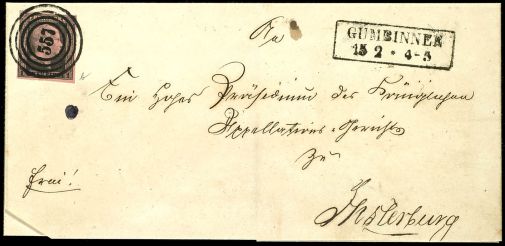 557
An
GUMBINNEN
15 2 * 4-5
Ein Hohes Präsidium des Königlichen
Appellations-Gerichts
zu
frei!
Insterburg